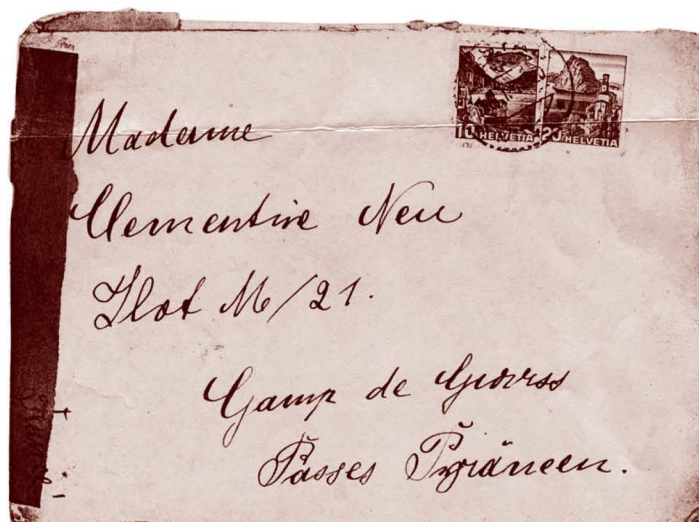 10 HELVETIA 20 HELVETIA
Madame
Clementine Neu
Ilot M/21.
Camp de Gurss
Basses Pyräneen.